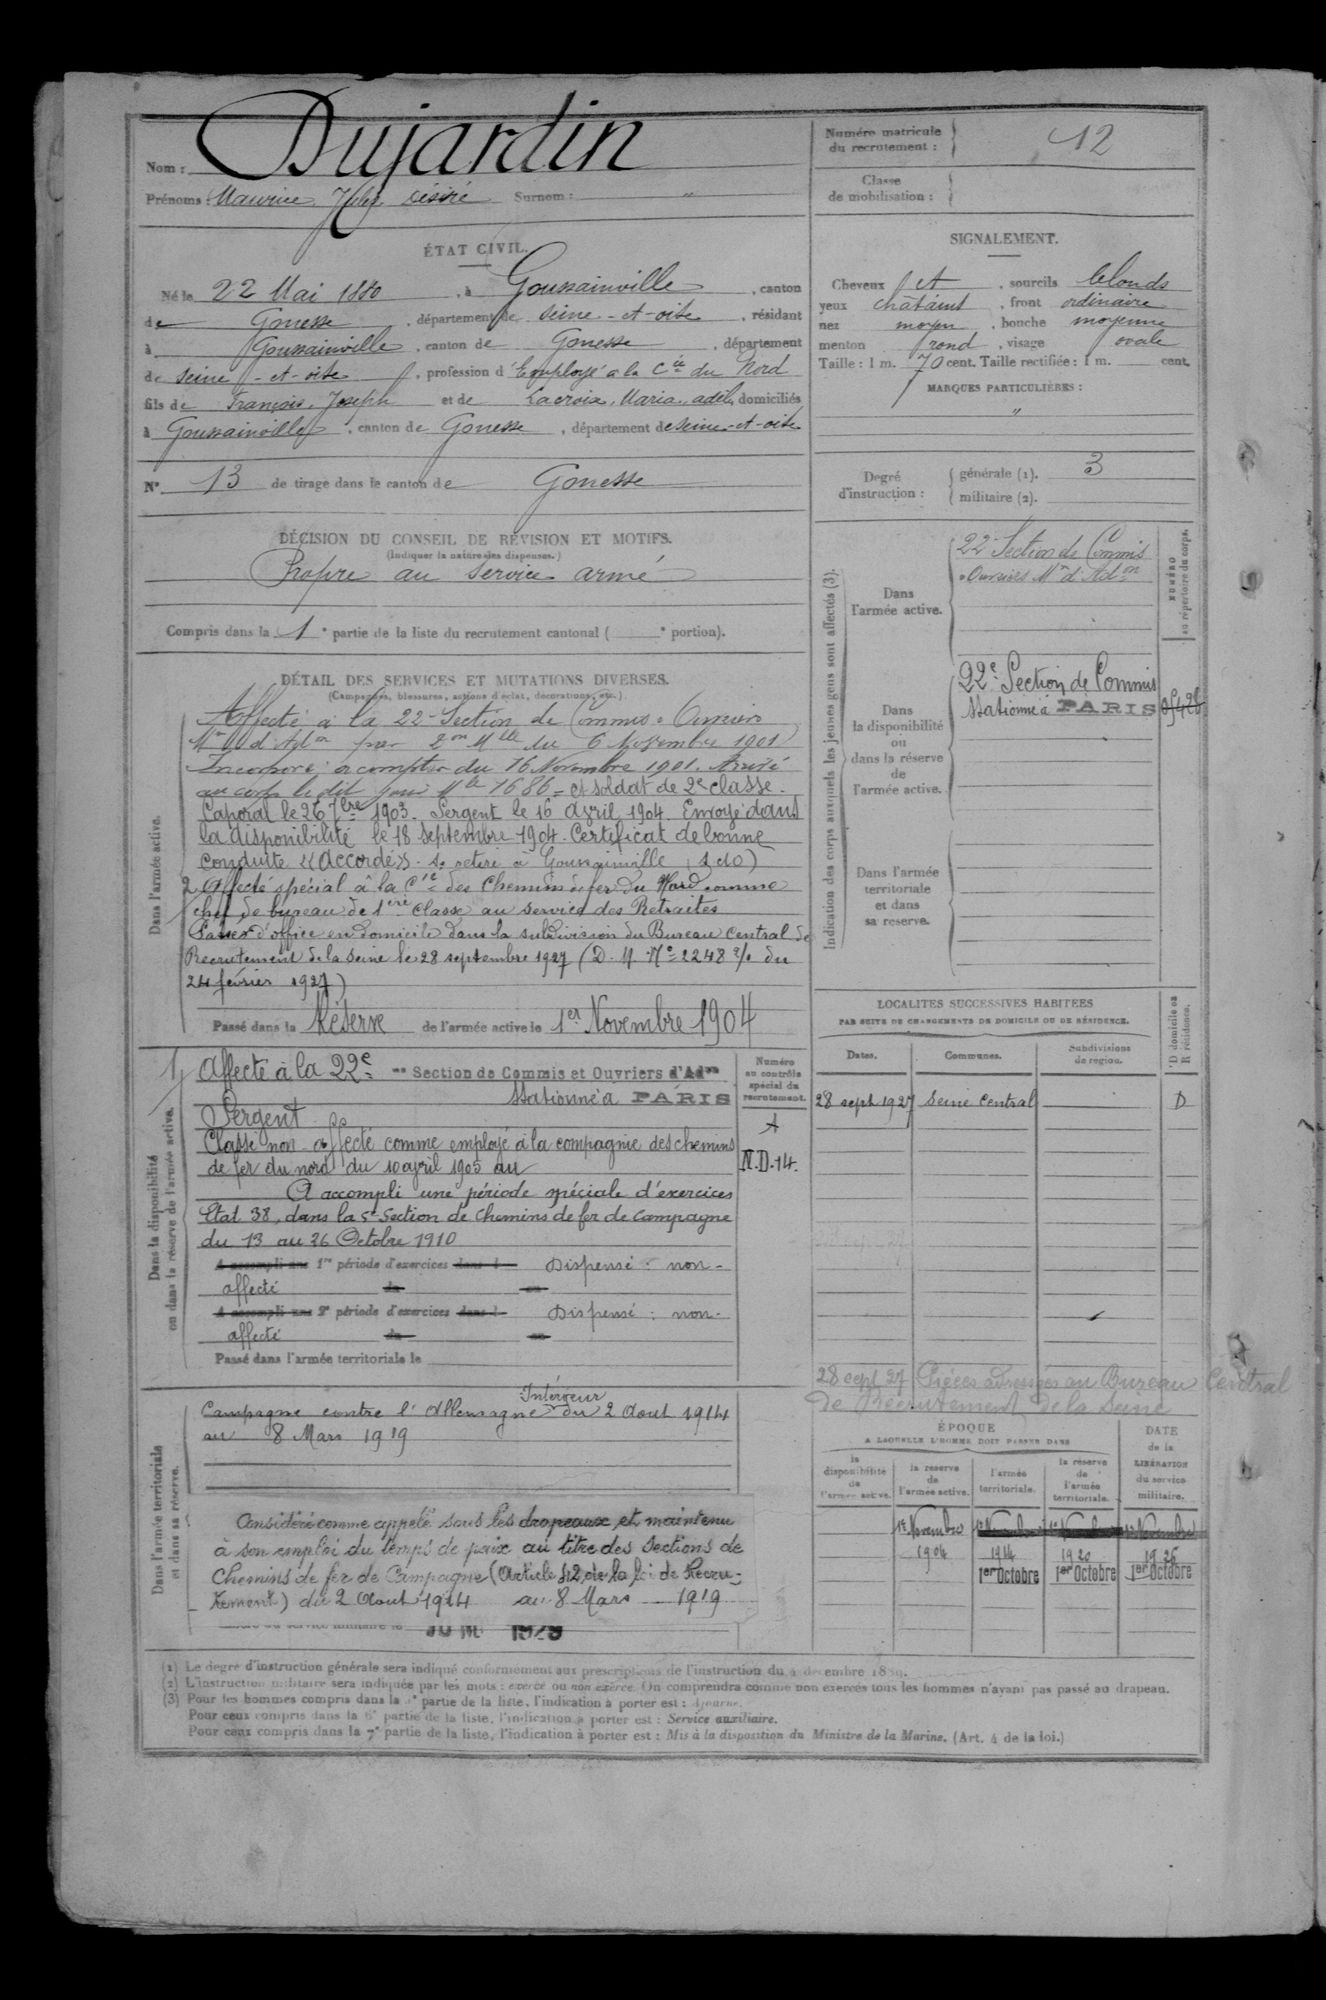 Nom : Dujardin
Prénoms : Maurice Jules Désiré Surnom : "
ÉTAT CIVIL.
Né le 22 Mai 1880, à Goussainville, canton
de Gonesse, département de Seine-et-oise, résidant
à Goussainville, canton de Gonesse, département
de Seine-et-oise, profession d'Employé à la Cie du Nord
fils de François Joseph et de Lacroix, Maria, adèle domiciliés
à Goussainville, canton de Gonesse, département de Seine-et-oise
N° 13 de tirage dans le canton de Gonesse
DÉCISION DU CONSEIL DE RÉVISION ET MOTIFS.
(Indiquer la nature des dispenses.)
Propre au service armé
Compris dans la 1e partie de la liste du recrutement cantonal ( e portion).
DÉTAIL DES SERVICES ET MUTATIONS DIVERSES.
(Campagnes, blessures, actions d'éclat, décorations, etc.)
Dans l'armée active.
Affecté à la 22e Section de Commis & Ouvriers
Mres d'Adon par Don Mlle du 6 Novembre 1901
Incorporé à compter du 16 Novembre 1901. Arrivé
au corps le dit jour Mle 1686 = et soldat de 2e classe.
Caporal le 26 7bre 1903. Sergent le 16 avril 1904. Envoyé dans
la disponibilité le 18 septembre 1904. Certificat de bonne
conduite "Accordé". Se retire à Goussainville (S &O)
2 Affecté spécial à la Cie des Chemins de fer du Nord comme
chef de bureau de 1ère Classe au service des Retraites
Passé d'office en domicile dans la subdivision du Bureau Central de
Recrutement de la Seine le 28 septembre 1927 (D. M. No 2248 du
24 février 1927)
Passé dans la Réserve de l'armée active le 1er Novembre 1904
Dans la disponibilité
ou dans la réserve de l'armée active.
Numéro
au contrôle
spécial du
recrutement.
1 Affecté à la 22e Section de Commis et Ouvriers d'Adon
Stationné à PARIS
Sergent
A
Classé non-affecté comme employé à la compagnie des chemins
N.D.14.
de fer du nord du 10 avril 1905 au
A accompli une période spéciale d'exercices
Etat 38, dans la 5e Section de Chemins de fer de Campagne
du 13 au 26 Octobre 1910
A accompli une 1re période d'exercices dans l Dispensé : non-
affecté du au
A accompli une 2e période d'exercices dans l Dispensé : non-
affecté du au
Passé dans l'armée territoriale le
Dans l'armée territoriale
et dans sa réserve.
Intérieur
Campagne contre l'Allemagne du 2 Aout 1914
au 8 Mars 1919
Considéré comme appelé sous les drapeaux et maintenu
à son emploi du temps de paix au titre des sections de
Chemins de fer de Campagne (Article 42 de la loi de Recru-
tement) du 2 Aout 1914 au 8 Mars 1919
Numéro matricule
du recrutement : 12
Classe
de mobilisation :
SIGNALEMENT.
Cheveux et, sourcils blonds
yeux châtains, front ordinaire
nez moyen, bouche moyenne
menton rond, visage ovale
Taille : 1 m. 70 cent. Taille rectifiée : 1 m. cent.
MARQUES PARTICULIÈRES :
"
Degré
d'instruction :
générale (1). 3
militaire (2).
Indication des corps auxquels les jeunes gens sont affectés (3).
NUMÉRO
au répertoire du corps.
Dans
l'armée active.
22e Section de Commis
& Ouvriers Mres d'Adon
Dans
la disponibilité
ou
dans la réserve
de
l'armée active.
22e Section de Commis
Stationné à PARIS
Dans l'armée
territoriale
et dans
sa réserve.
LOCALITÉS SUCCESSIVES HABITÉES
PAR SUITE DE CHANGEMENTS DE DOMICILE OU DE RÉSIDENCE.
Dates. Communes. Subdivisions
de région.
D domicile ou
R résidence.
28 sept 1927 Seine Central D
28 sept 27 Pièces adressées au Bureau Central
de Recrutement de la Seine
ÉPOQUE
A LAQUELLE L'HOMME DOIT PASSER DANS
DATE
de la
LIBÉRATION
du service
militaire.
la
disponibilité
de
l'armée active.
la réserve
de
l'armée active.
l'armée
territoriale.
la réserve
de
l'armée
territoriale.
1er Novembre 1er Novembre 1er Novembre 1er Novembre
1904 1914 1920 1926
1er Octobre 1er Octobre 1er Octobre
(1) Le degré d'instruction générale sera indiqué conformément aux prescriptions de l'instruction du 4 décembre 1889.
(2) L'instruction militaire sera indiquée par les mots : exercé ou non exercé. On comprendra comme non exercés tous les hommes n'ayant pas passé au drapeau.
(3) Pour les hommes compris dans la 5e partie de la liste, l'indication à porter est : Ajourné.
Pour ceux compris dans la 6e partie de la liste, l'indication à porter est : Service auxiliaire.
Pour ceux compris dans la 7e partie de la liste, l'indication à porter est : Mis à la disposition du Ministre de la Marine. (Art. 4 de la loi.)